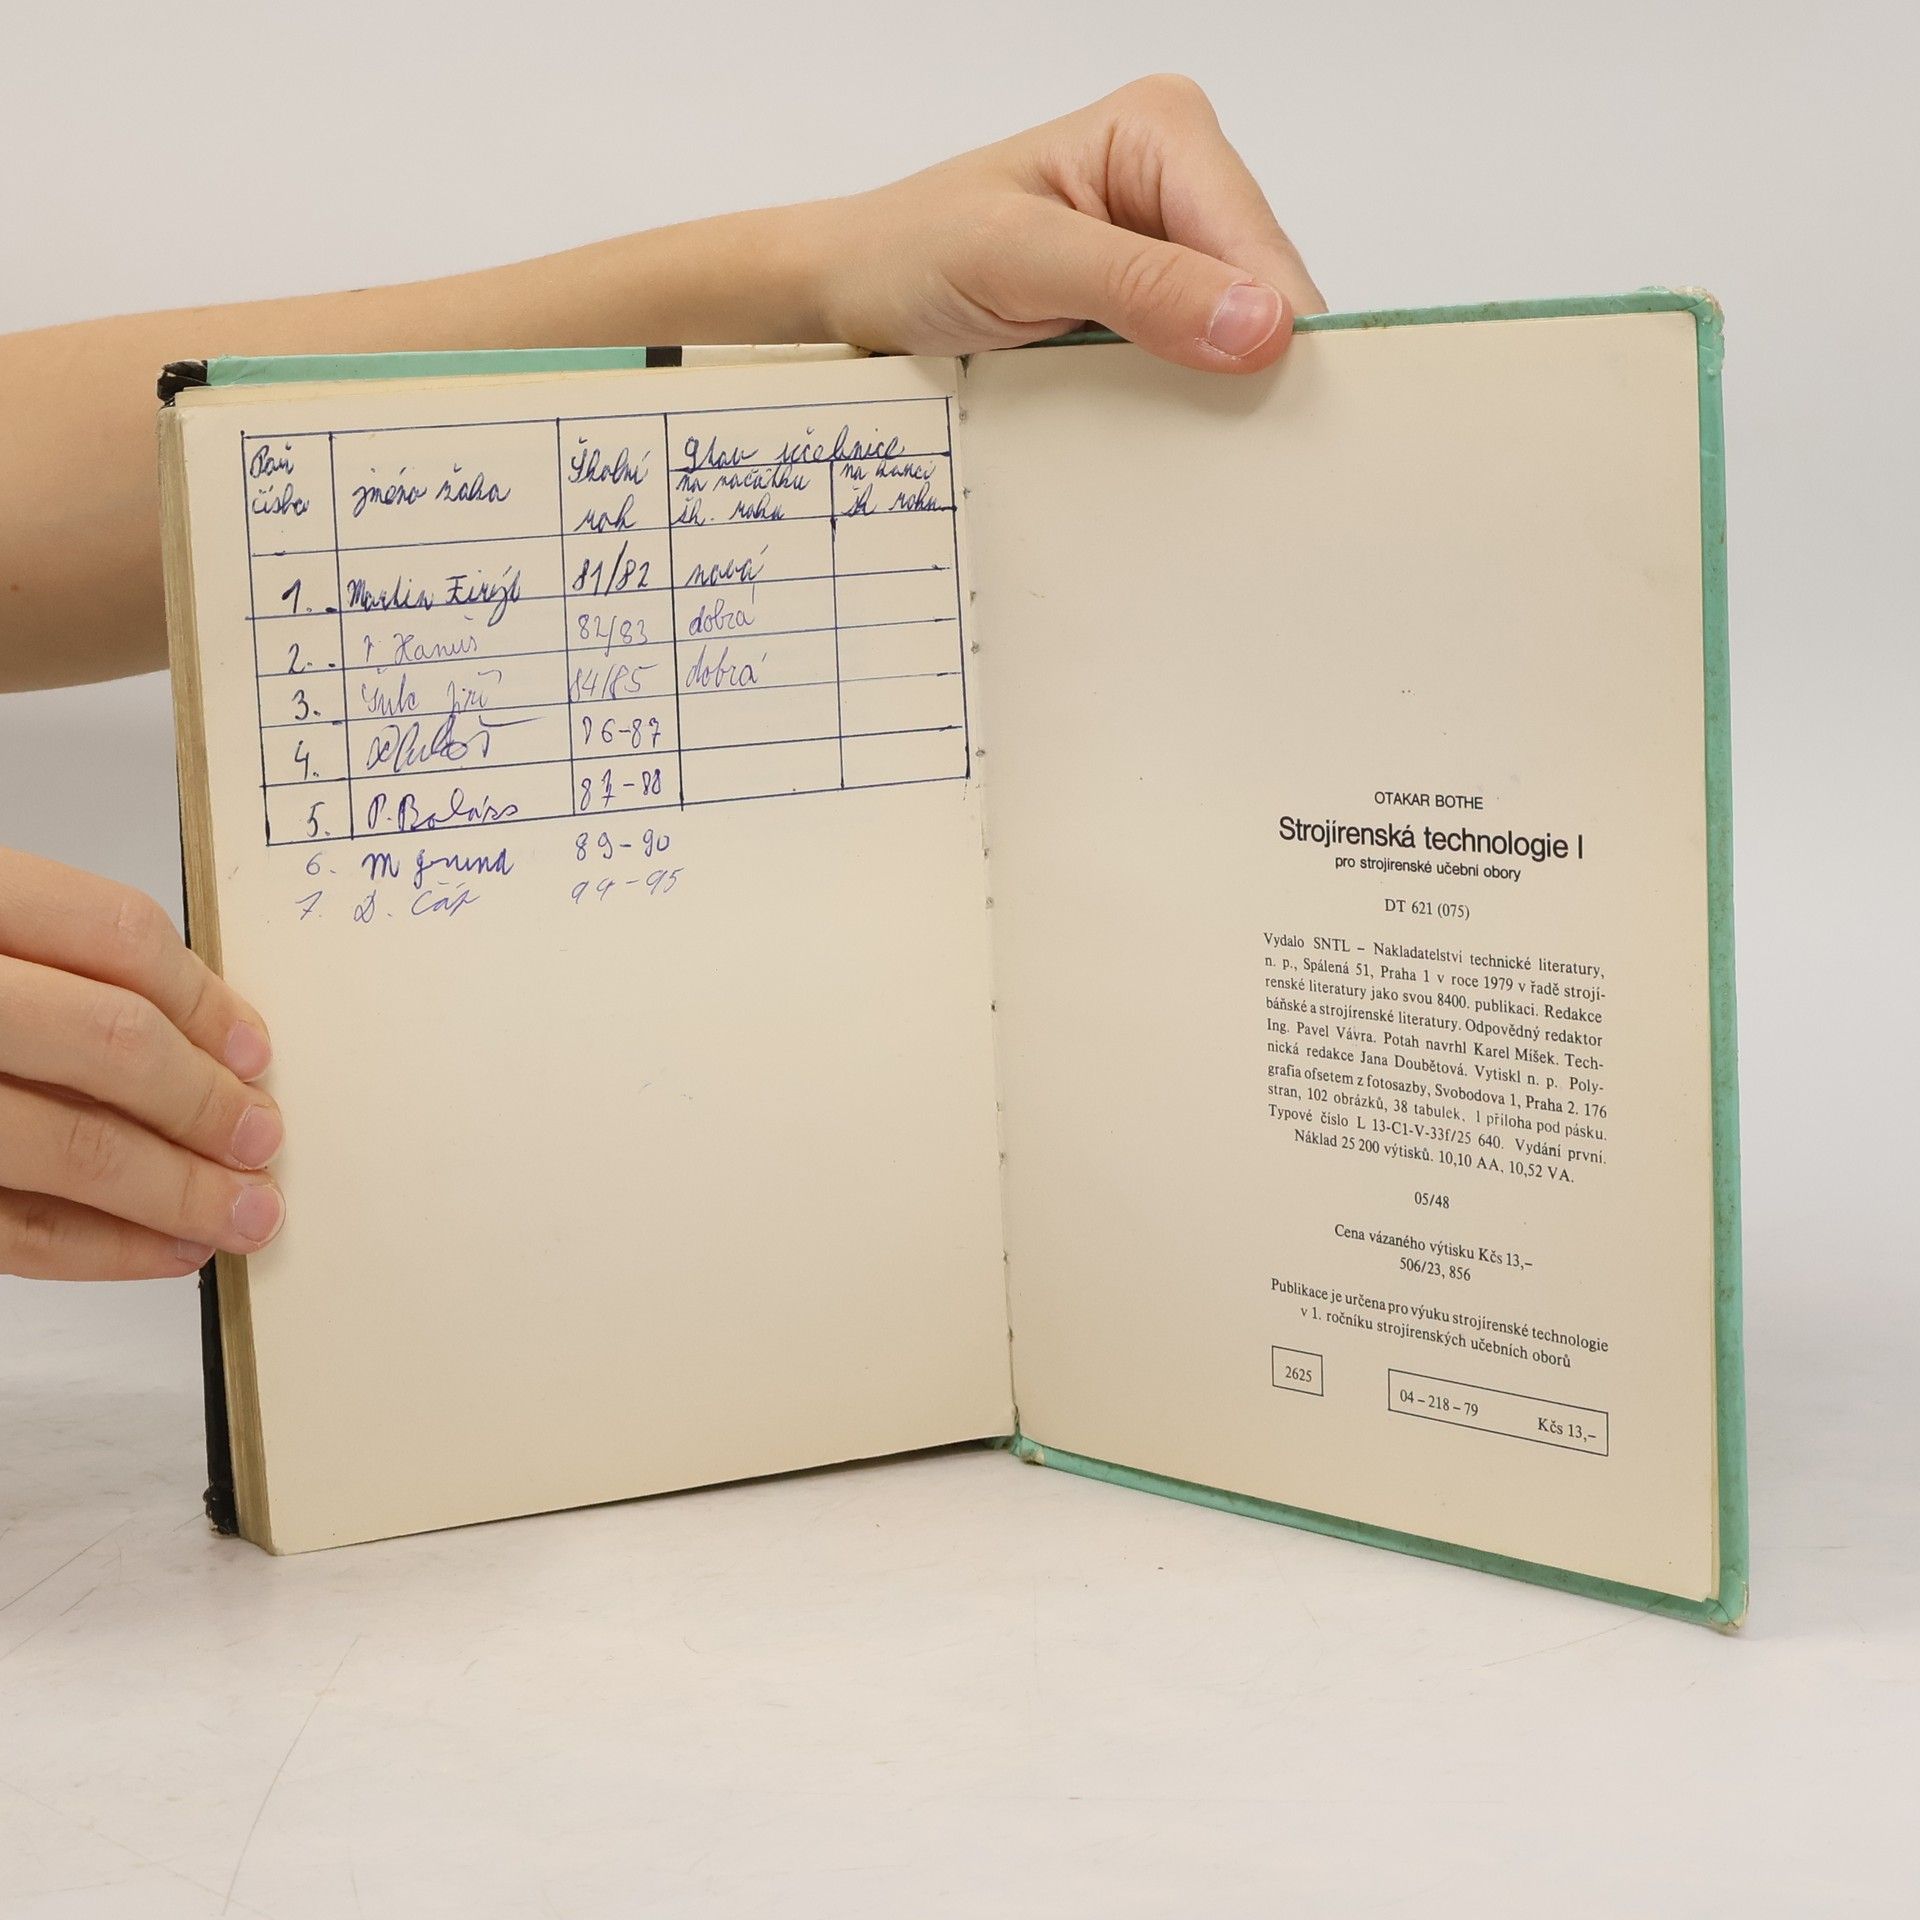 Poř. číslo
jméno žáka
Školní rok
Stav učebnice
na začátku šk. roku
na konci šk. roku
1. Martin 81/82 nová
2. Hanuš 82/83 dobrá
3. Šulc Jiří 84/85 dobrá
4. 86-87
5. P. Baláss 87-88
6. M grund 89-90
7. D. Čáp 94-95
OTAKAR BOTHE
Strojírenská technologie I
pro strojírenské učební obory
DT 621 (075)
Vydalo SNTL – Nakladatelství technické literatury,
n. p., Spálená 51, Praha 1 v roce 1979 v řadě strojí-
renské literatury jako svou 8400. publikaci. Redakce
báňské a strojírenské literatury. Odpovědný redaktor
Ing. Pavel Vávra. Potah navrhl Karel Míšek. Tech-
nická redakce Jana Doubětová. Vytiskl n. p. Poly-
grafia ofsetem z fotosazby, Svobodova 1, Praha 2. 176
stran, 102 obrázků, 38 tabulek. 1 příloha pod pásku.
Typové číslo L 13-C1-V-33f/25 640. Vydání první.
Náklad 25 200 výtisků. 10,10 AA, 10,52 VA.
05/48
Cena vázaného výtisku Kčs 13,–
506/23, 856
Publikace je určena pro výuku strojírenské technologie
v 1. ročníku strojírenských učebních oborů
2625
04 – 218 – 79 Kčs 13,–